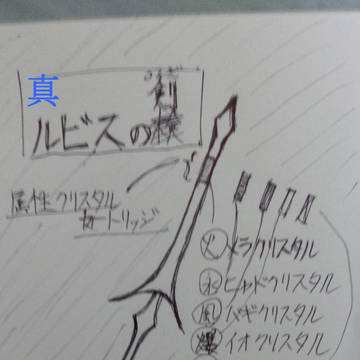 真
ルビスの剣
属性クリスタル
カートリッジ
火 メラクリスタル
氷 ヒャドクリスタル
風 バギクリスタル
爆 イオクリスタル